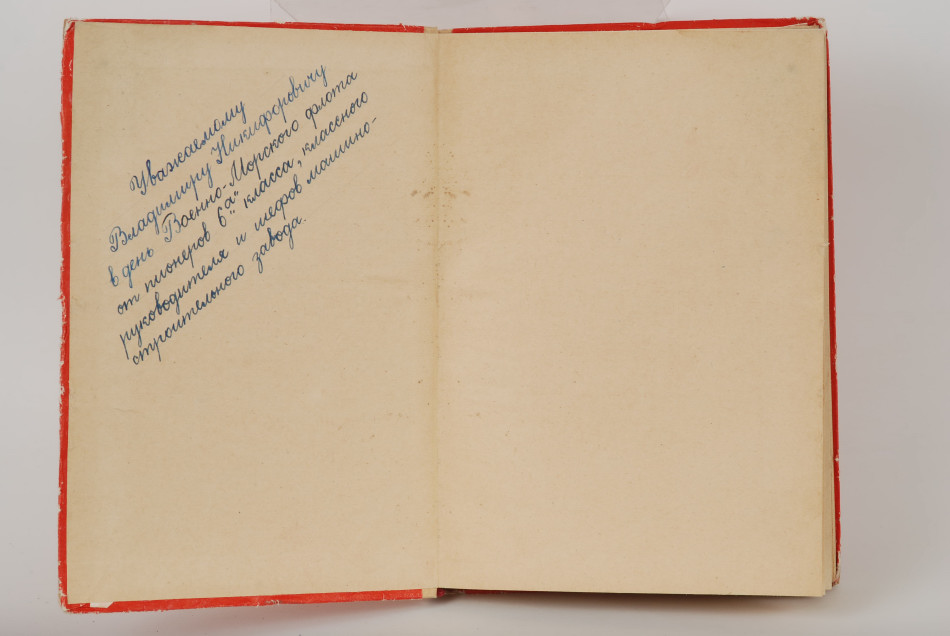 Уважаемому
Владимиру Никифоровичу
в день Военно-Морского флота
от пионеров 6"а" класса, классного
руководителя и шефов машино-
строительного завода.